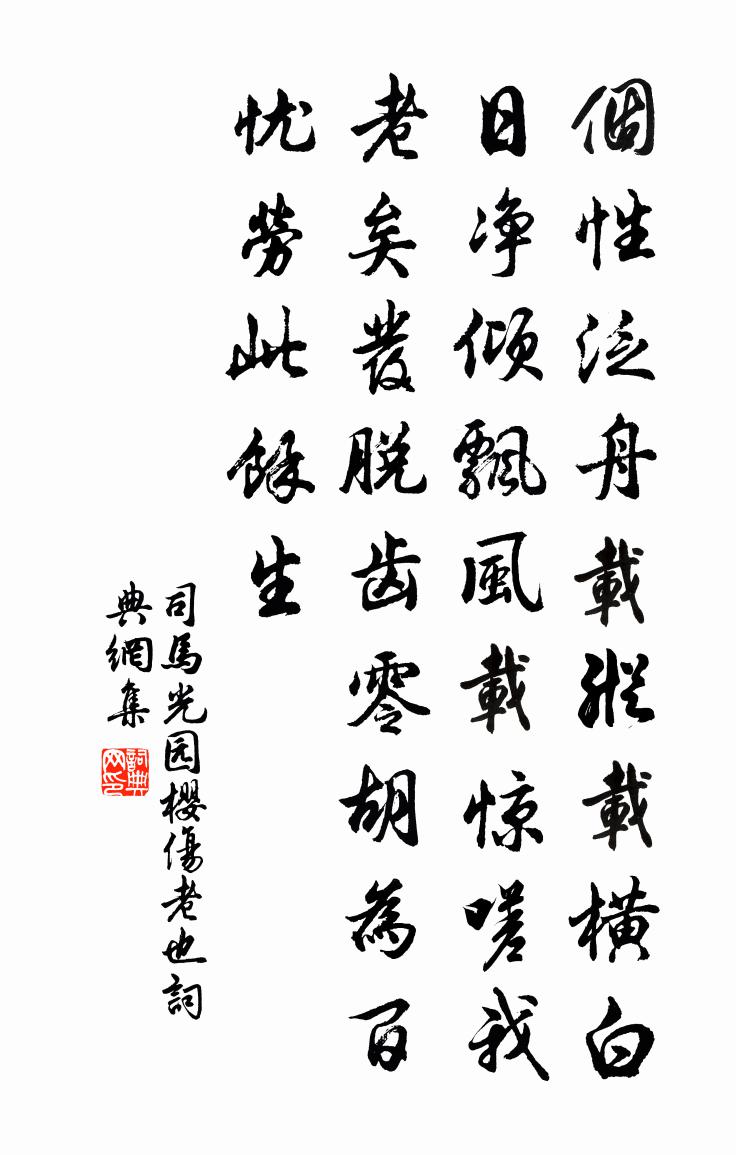 個性泛舟載縱載橫白
日净傾飄風載惊嗟我
老矣發脱齿零胡為百
忧勞此餘生
司馬光园櫻傷老也詞
典網集
詞典网印